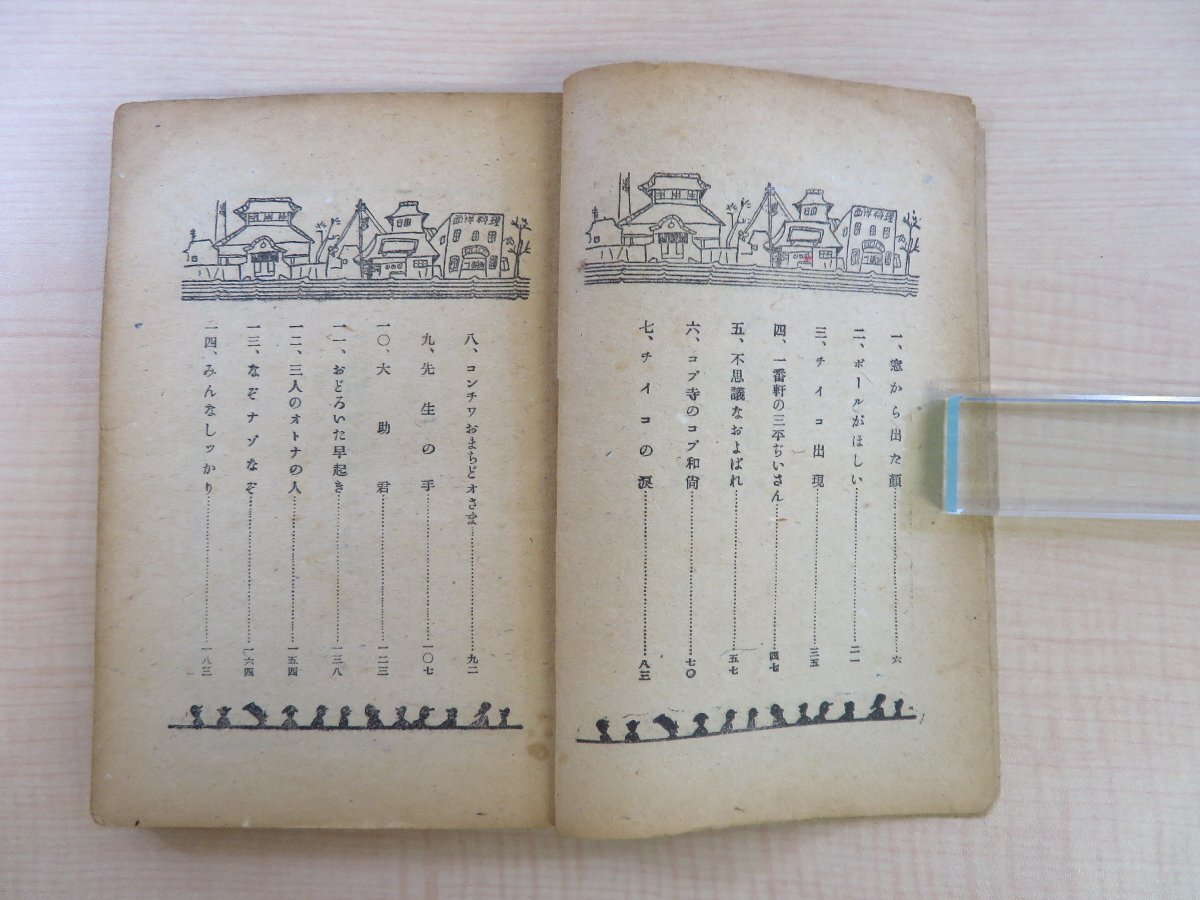 西洋料理
一、窓から出た顔……六
二、ボールがほしい……二一
三、チイコ出現……三五
四、一番軒の三平ぢいさん……四七
五、不思議なおよばれ……五七
六、コブ寺のコブ和尙……七〇
七、チイコの淚……八三
西洋料理
八、コンチワおまちどオさま……九二
九、先生の手……一〇七
一〇、大助君……一二三
一一、おどろいた早起き……一三八
一二、三人のオトナの人……一五四
一三、なぞナゾなぞ……一六四
一四、みんなしッかり……一八三